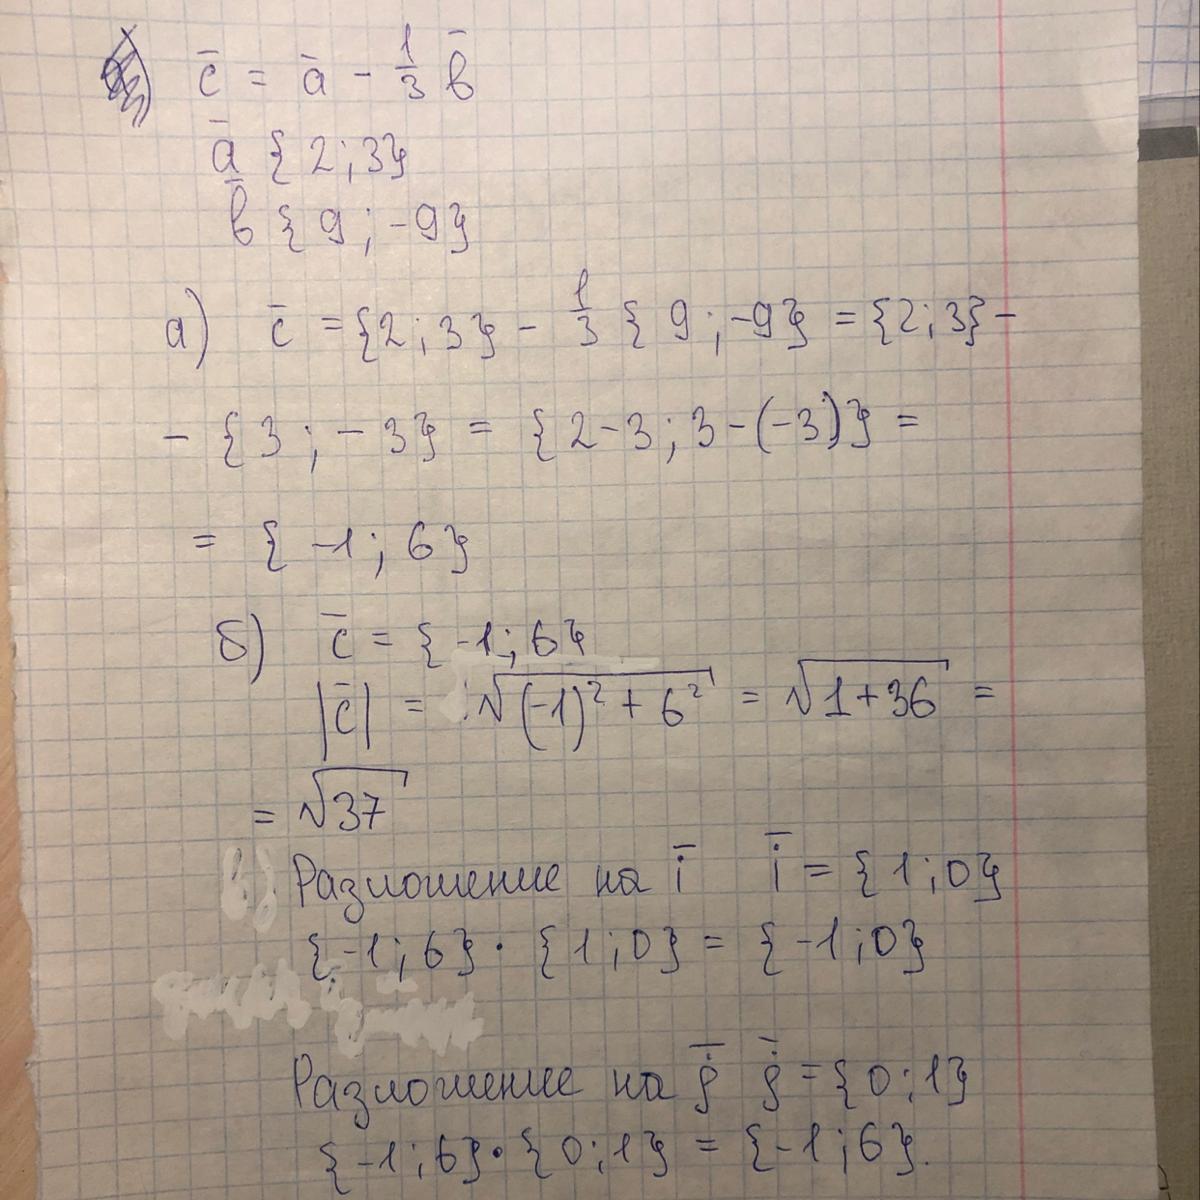 c̄ = ā - 1/3 b̄
ā {2;3}
b̄ {9;-9}
а) c̄ = {2;3} - 1/3 {9;-9} = {2;3} -
- {3;-3} = {2-3;3-(-3)} =
= {-1;6}
б) c̄ = {-1;6}
|c̄| = √((-1)² + 6²) = √(1+36) =
= √37
в) Разложение на ī ī = {1;0}
{-1;6} · {1;0} = {-1;0}
Разложение на j̄ j̄ = {0;1}
{-1;6} · {0;1} = {-1;6}.